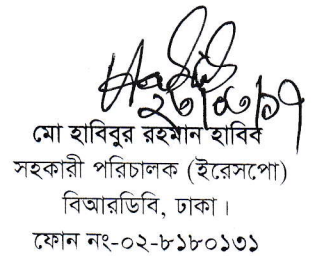 মো হাবিবুর রহমান হাবিব
সহকারী পরিচালক (ইরেসপো)
বিআরডিবি, ঢাকা।
ফোন নং-০২-৮১৮০১৩১